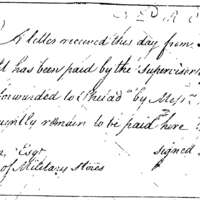 A letter received this day from
has been paid by the Supervisor
forwarded to Philad.a by Mess.rs
remain to be paid here
Esq.r
signed
of Military Stores